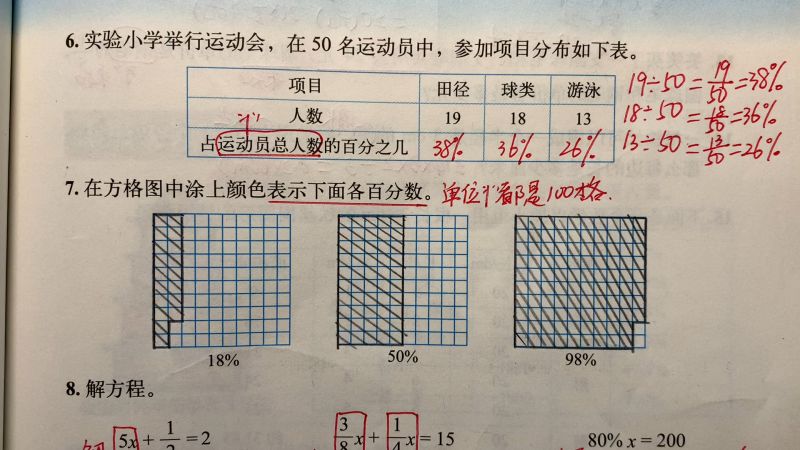 6. 实验小学举行运动会，在 50 名运动员中，参加项目分布如下表。
项目 田径 球类 游泳
人数 19 18 13
占运动员总人数的百分之几 38% 36% 26%
19÷50=19/50=38%
18÷50=18/50=36%
13÷50=13/50=26%
7. 在方格图中涂上颜色表示下面各百分数。 单位"1"都是100格.
18% 50% 98%
8. 解方程。
5x + 1/2 = 2 3/8 x + 1/4 x = 15 80% x = 200